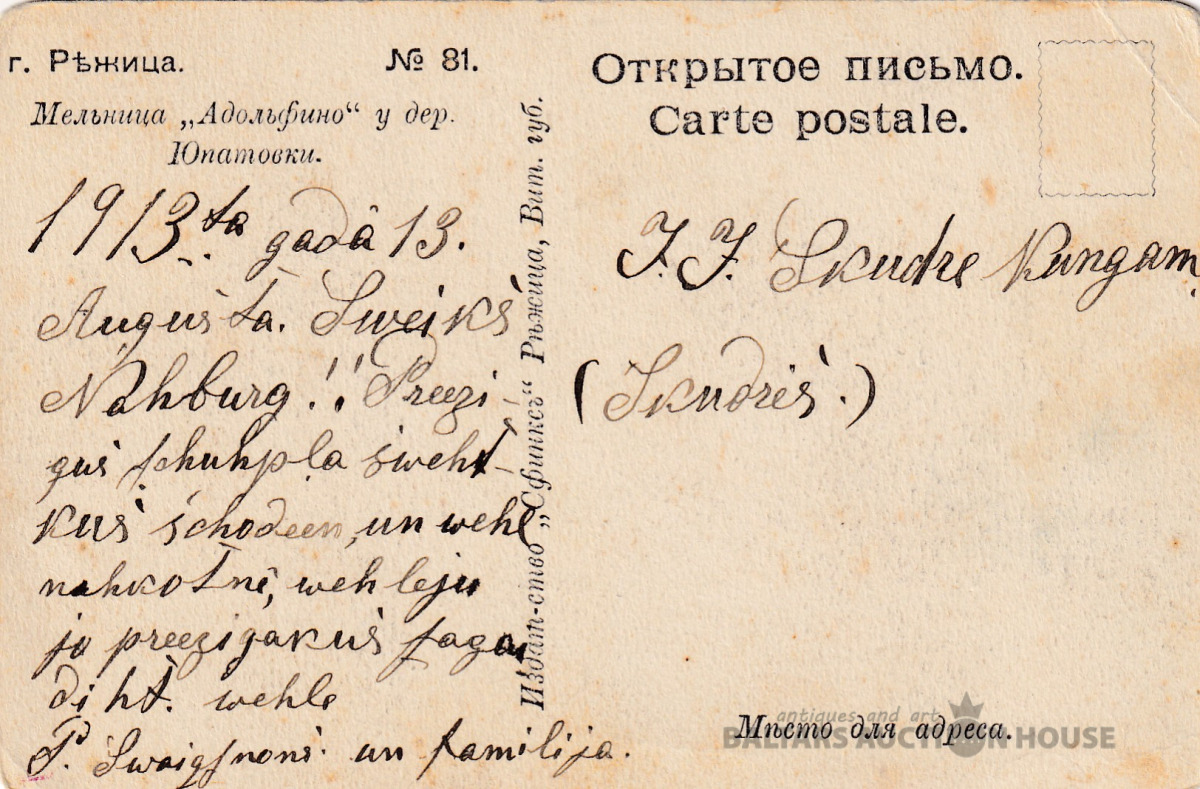 г. Рѣжица. № 81.
Мельница „Адольфино“ у дер.
Юпатовки.
1913.ta gadâ 13.
Augusta. Sweiks
Nahburg!! Preezi-
gus schuhpla sweht-
kus schodeen, un wehl
nahkotnê, wehleju
jo preezigakus saga
diht. wehle
P. Swaigsnons un familija.
Издат-ство „Сфинксъ“ Рѣжица, Вит. губ.
Открытое письмо.
Carte postale.
J. J. Skudre Kungam
(Skudres.)
Мѣсто для адреса.
antiques and art
BALTARS AUCTION HOUSE